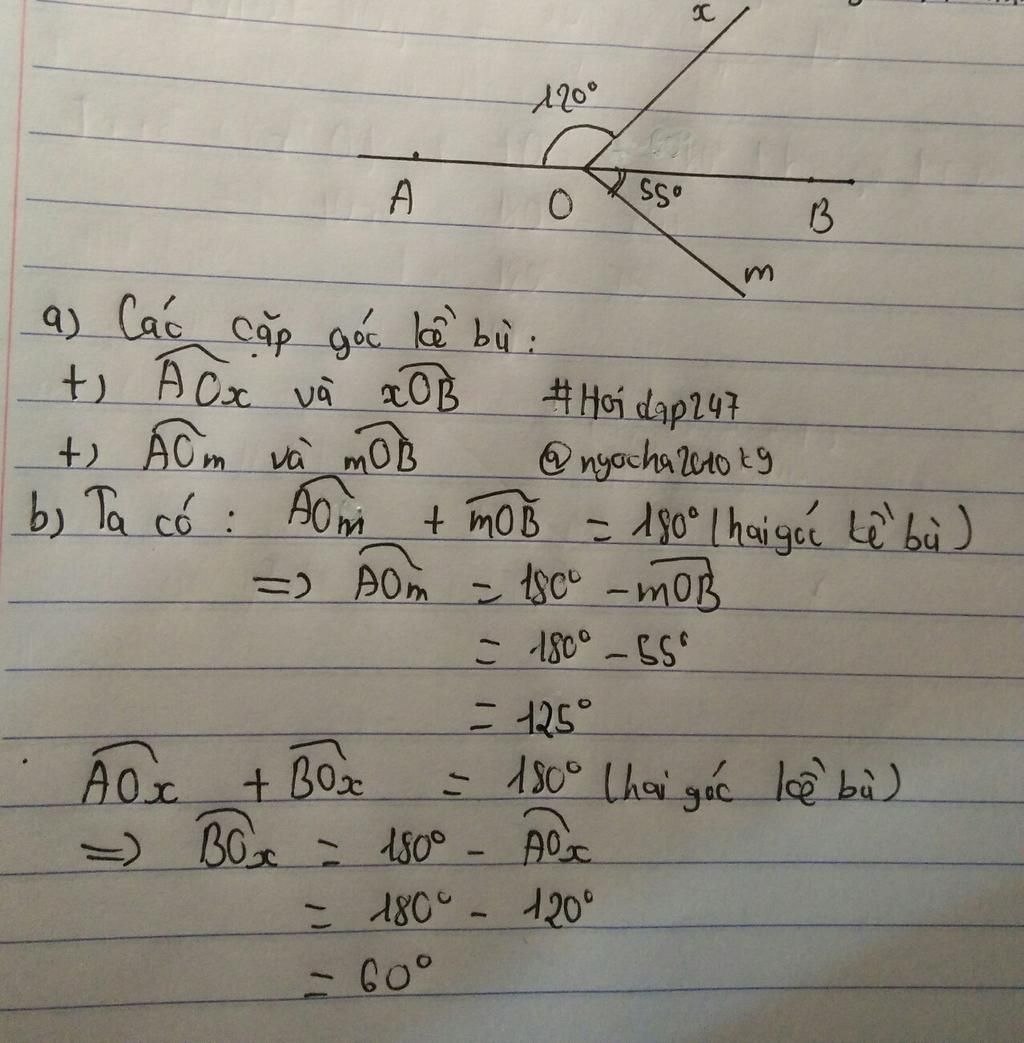 x
120°
A O 55° B
m
a) Các cặp góc kề bù :
+) AOx và xOB #Hoidap247
+) AOm và mOB @ngocha2010kg
b) Ta có : AOm + mOB = 180° (hai góc kề bù)
=> AOm = 180° - mOB
= 180° - 55°
= 125°
AOx + BOx = 180° (hai góc kề bù)
=> BOx = 180° - AOx
= 180° - 120°
= 60°